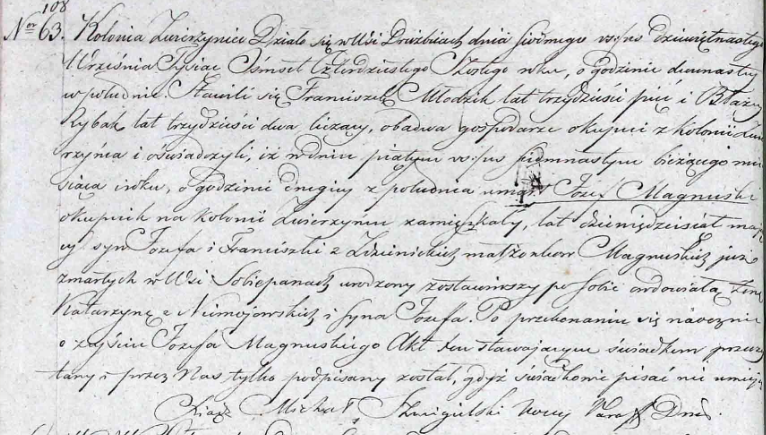 108
Nr 63. Kolonia Zwierzyniec Działo się w Wsi Drużbicach dnia siódmego w/s dziewiętnastego
Września Tysiąc Ośmset Czterdziestego Szóstego roku, o godzinie dwunastey
w południe. Stawili się Franciszek Młodzik lat trzydzieści pięć i Błażey
Rybak lat trzydzieści dwa liczący, obadwa gospodarze okupnicy z kolonii Zwie
rzyńca i oświadczyli, iż w dniu piątym w/s siedmnastym bieżącego mie
siąca i roku, o godzinie drugiey z południa umarł Jozef Magnuski
okupnik na kolonii Zwierzyńcu zamieszkały, lat dziewiędziesiąt mają
cy syn Jozefa i Franciszki z małżonków Magnuskich już
zmarłych w Wsi Sobiepanach urodzony zostawiwszy po sobie owdowiałą żonę
Katarzynę z Niemojewskich i syna Jozefa. Po przekonaniu się naocznie
o zejściu Jozefa Magnuskiego Akt ten stawającym świadkom przeczy
tany i przez Nas tylko podpisany został, gdyż świadkowie pisać nie umieją
Xiądz Michał